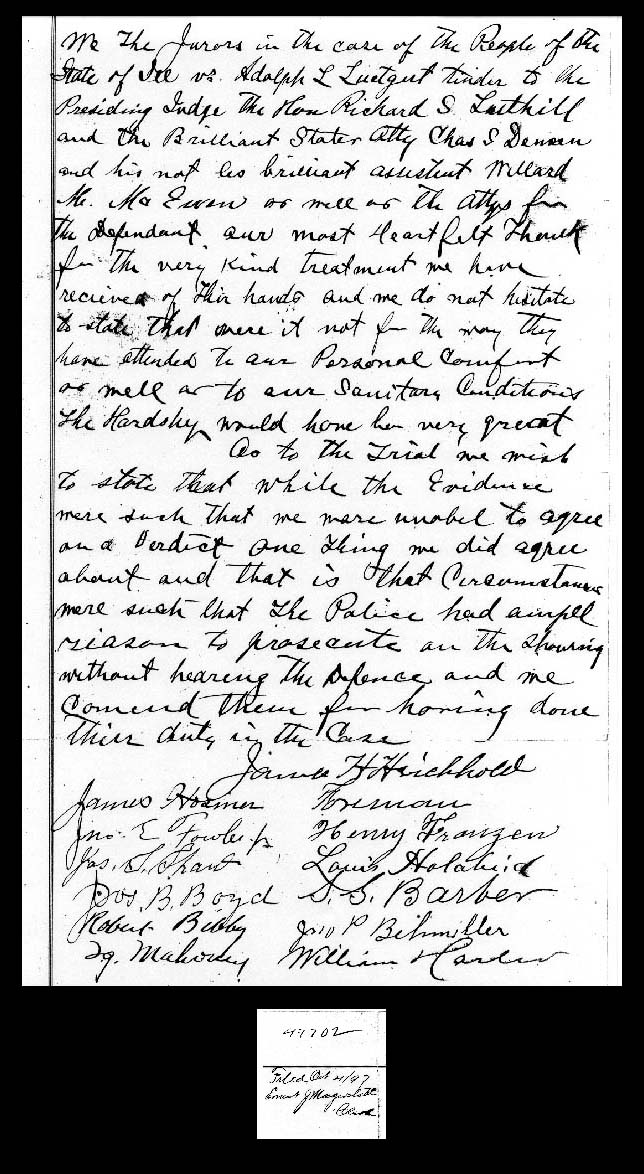 We The Jurors in the case of the People of the
State of Ill vs. Adolph L Luetgert tender to the
Presiding Judge The Hon Richard S. Tuthill
and the Brilliant States Atty Chas S Deneen
and his not les brilliant assistent Willard
Mc. Mc Ewen as well as the Attys for
the Defendant our most Heartfelt Thanks
for the very kind treatment we have
recieved of thir hands and we do not hesitate
to state that were it not for the way they
have attended to our Personal Comfort
as well as to our Sanitary Conditions
the Hardship would have ben very great
As to the Trial we wish
to state that while the Evidence
were such that we ware unabel to agree
on a Verdict one thing we did agree
about and that is that Circumstances
were such that the Police had ampel
reason to prosecute on the showing
without hearing the Defence and we
Comend them for having done
thier duty in the Case
James H Heichhold
James Hosmer Foreman
Jno. E Fowler Jr Henry Franzen
Jas. S. Shaw Louis Holabird
Jos. B. Boyd S. S. Barber
Robert Bibby Jno P Behmiller
Mahoney William Harlev
49702
Filed Oct 21/97
Ernst J Magerstadt
Clerk